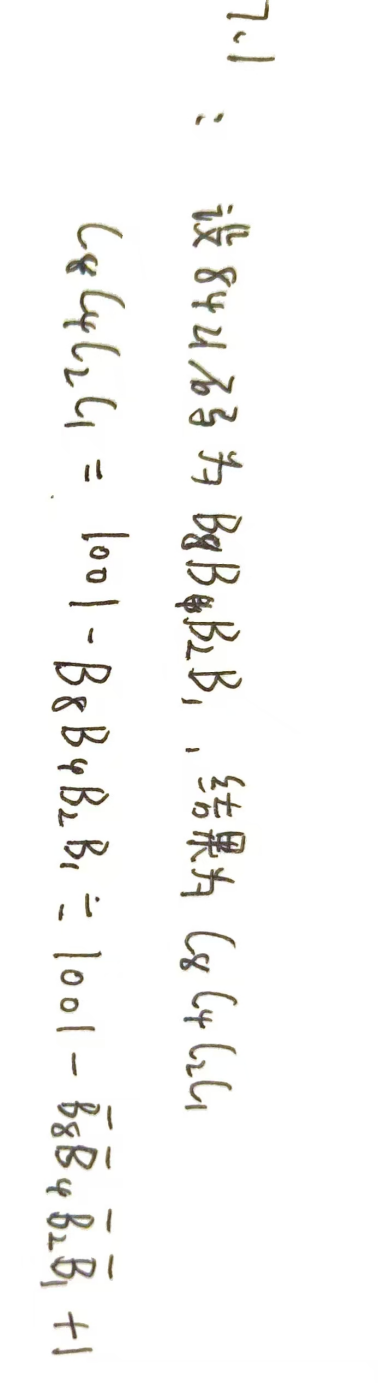 7.1 : 设8421码为B₈B₄B₂B₁, 结果为C₈C₄C₂C₁
C₈C₄C₂C₁ = 1001 - B₈B₄B₂B₁ = 1001 - B̄₈B̄₄B̄₂B̄₁ + 1